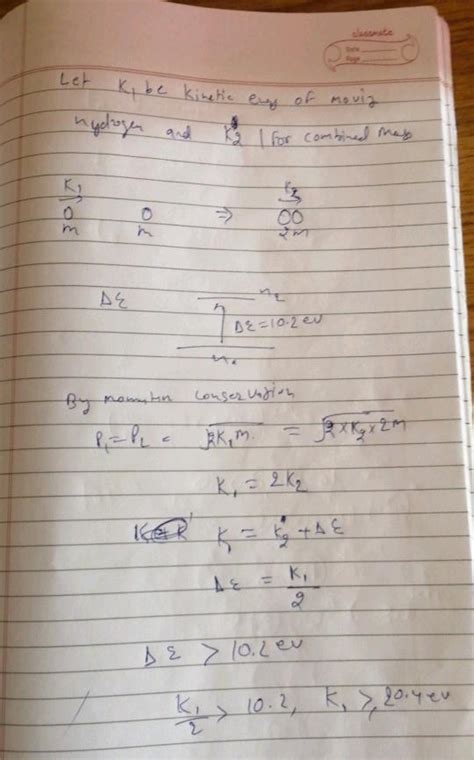 classmate
Date
Page
Let K₁ be kinetic
hydrogen and K₂ for combined mass
K₁ K₂
O O ⇒ OO
m m 2m
ΔE
n₂
ΔE = 10.2 ev
By conservation
P₁ = P₂ = √2K₁m = √2×K₂×2m
K₁ = 2K₂
K₁ = K₂ + ΔE
ΔE = K₁/2
ΔE > 10.2 ev
K₁/2 > 10.2, K₁ > 20.4 ev